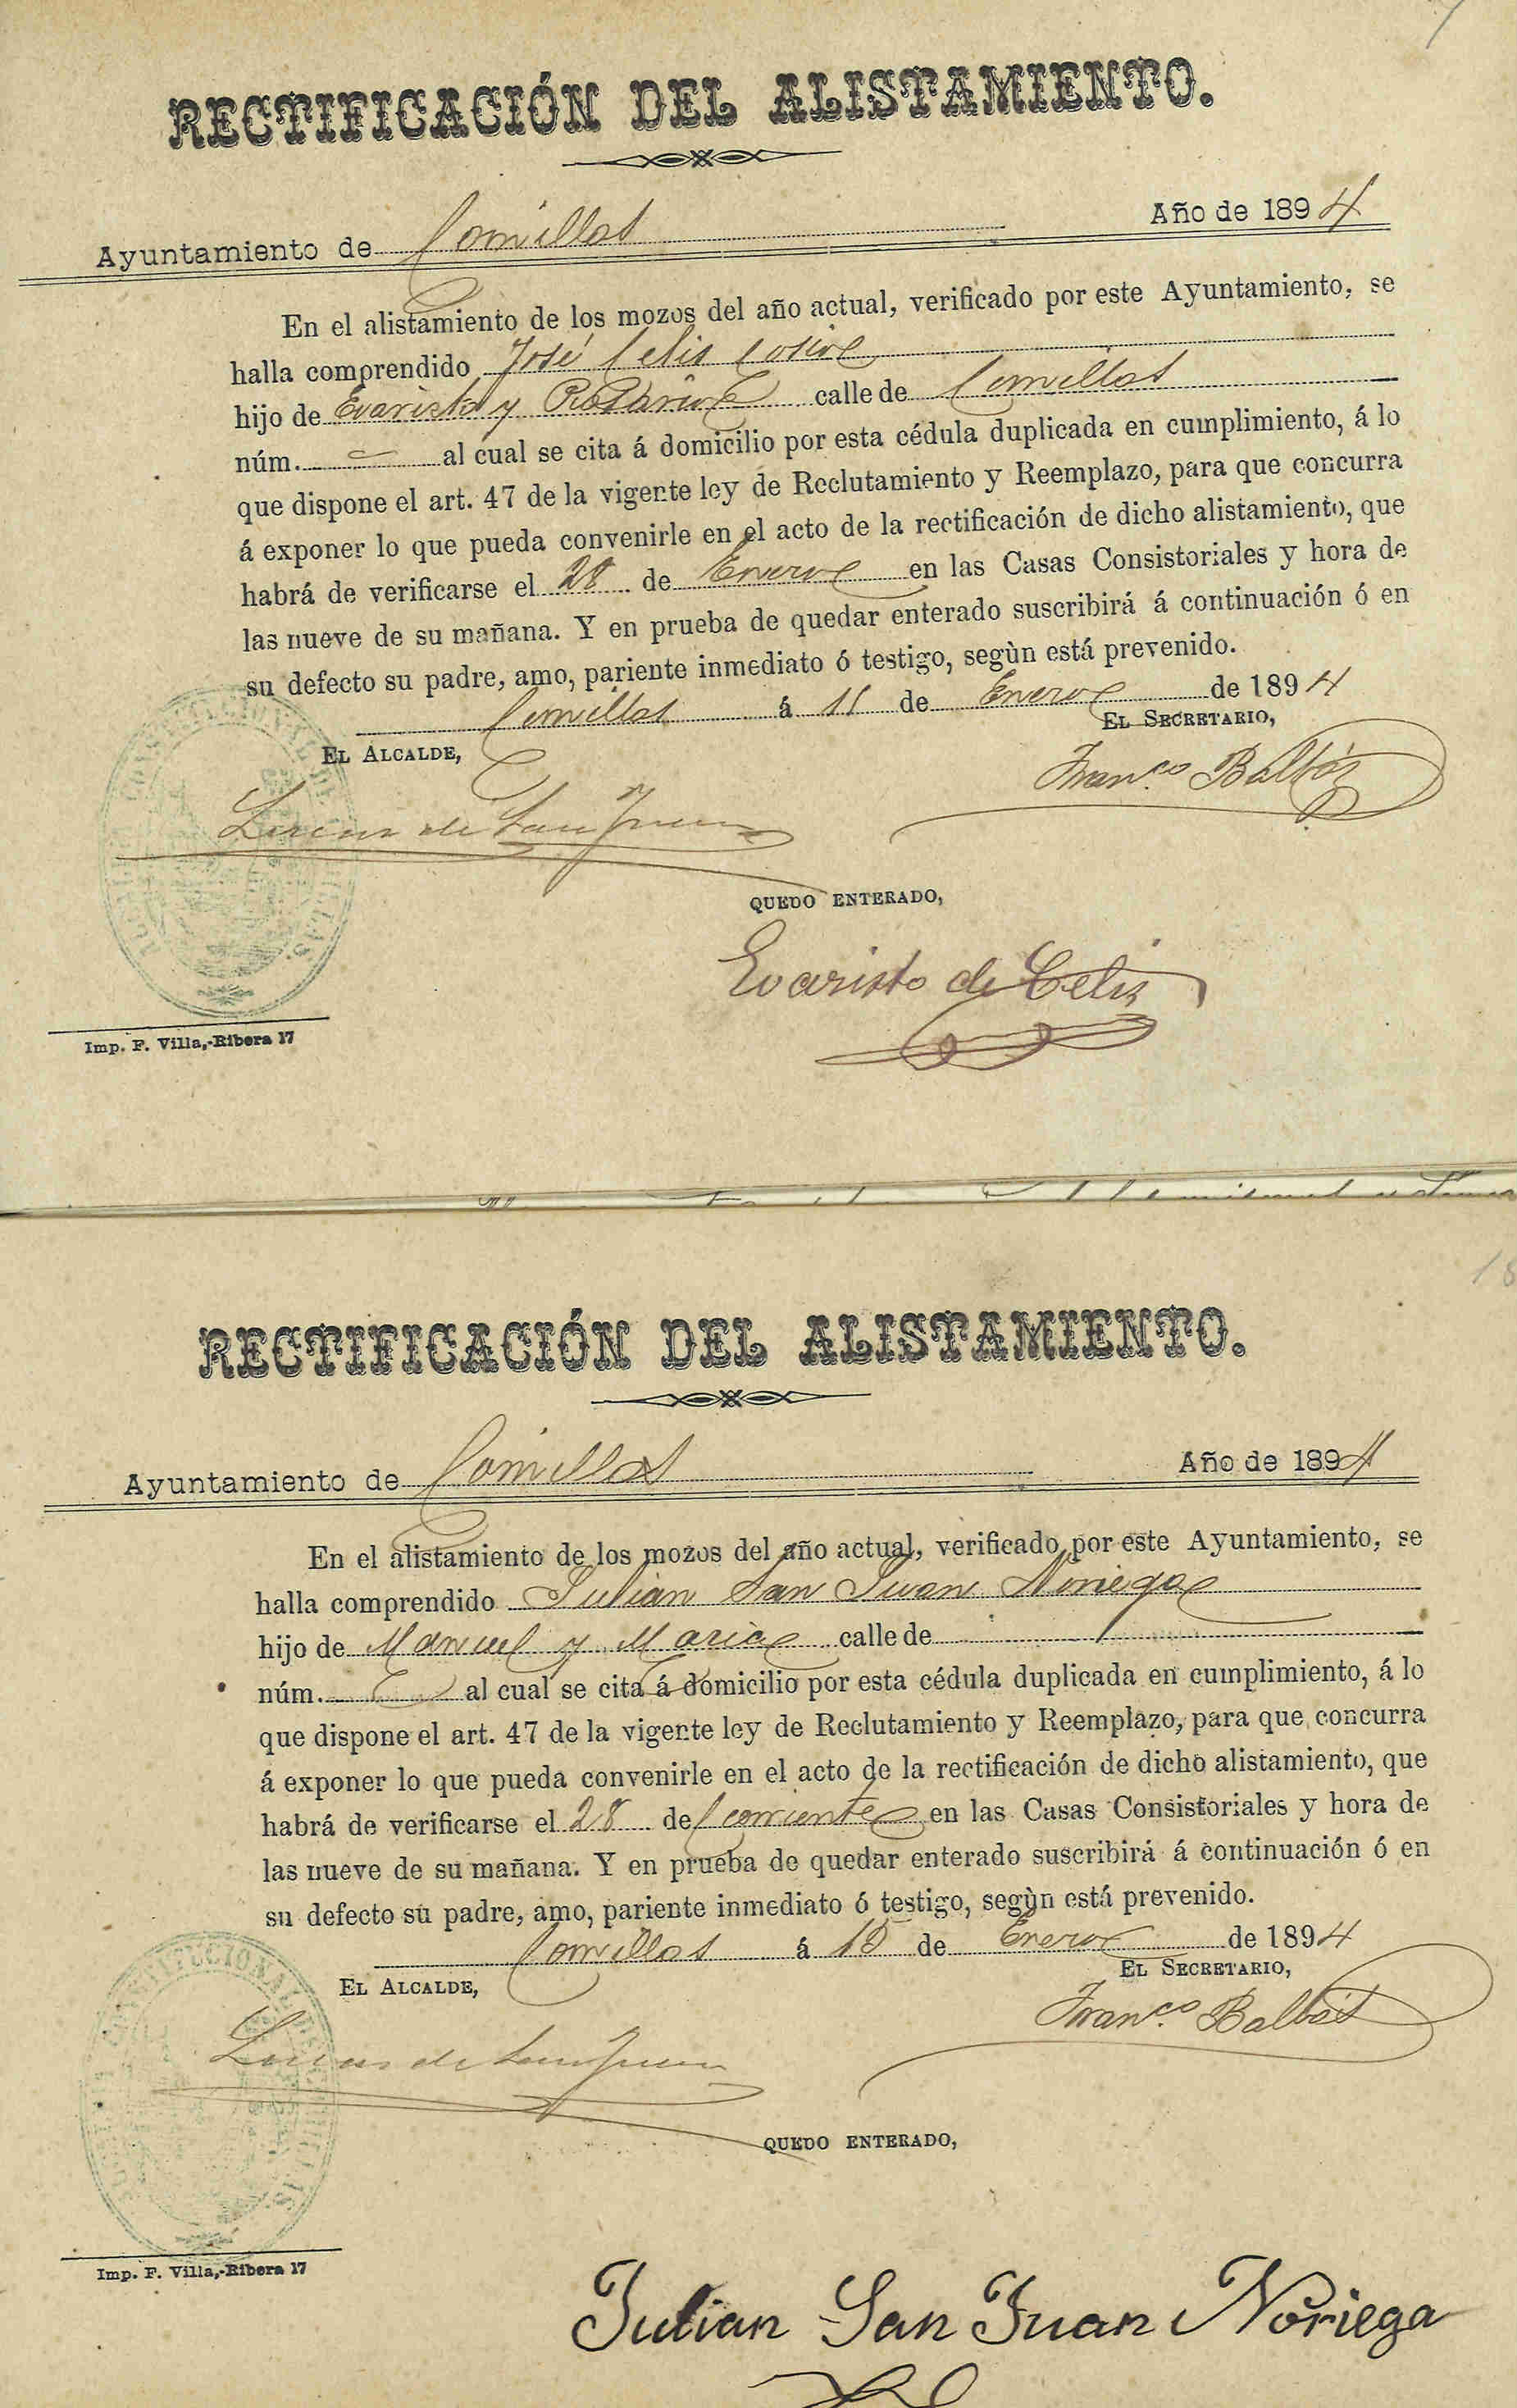 RECTIFICACIÓN DEL ALISTAMIENTO.
Ayuntamiento de Comillas Año de 1894
En el alistamiento de los mozos del año actual, verificado por este Ayuntamiento, se
halla comprendido José Celis
hijo de Evaristo y Rosario calle de Comillas
núm. al cual se cita á domicilio por esta cédula duplicada en cumplimiento, á lo
que dispone el art. 47 de la vigente ley de Reclutamiento y Reemplazo, para que concurra
á exponer lo que pueda convenirle en el acto de la rectificación de dicho alistamiento, que
habrá de verificarse el 28 de Enero en las Casas Consistoriales y hora de
las nueve de su mañana. Y en prueba de quedar enterado suscribirá á continuación ó en
su defecto su padre, amo, pariente inmediato ó testigo, segùn está prevenido.
Comillas á 11 de Enero de 1894
EL ALCALDE, EL SECRETARIO,
Lucas de San Juan Franco. Balbás
QUEDO ENTERADO,
Evaristo de Celis
Imp. F. Villa,-Ribera 17
RECTIFICACIÓN DEL ALISTAMIENTO.
Ayuntamiento de Comillas Año de 1894
En el alistamiento de los mozos del año actual, verificado por este Ayuntamiento, se
halla comprendido Julian San Juan Noriega
hijo de Manuel y Maria calle de
núm. al cual se cita á domicilio por esta cédula duplicada en cumplimiento, á lo
que dispone el art. 47 de la vigente ley de Reclutamiento y Reemplazo, para que concurra
á exponer lo que pueda convenirle en el acto de la rectificación de dicho alistamiento, que
habrá de verificarse el 28 del corriente en las Casas Consistoriales y hora de
las nueve de su mañana. Y en prueba de quedar enterado suscribirá á continuación ó en
su defecto su padre, amo, pariente inmediato ó testigo, segùn está prevenido.
Comillas á de Enero de 1894
EL ALCALDE, EL SECRETARIO,
Lucas de San Juan Franco. Balbás
QUEDO ENTERADO,
Imp. F. Villa,-Ribera 17
Julian San Juan Noriega